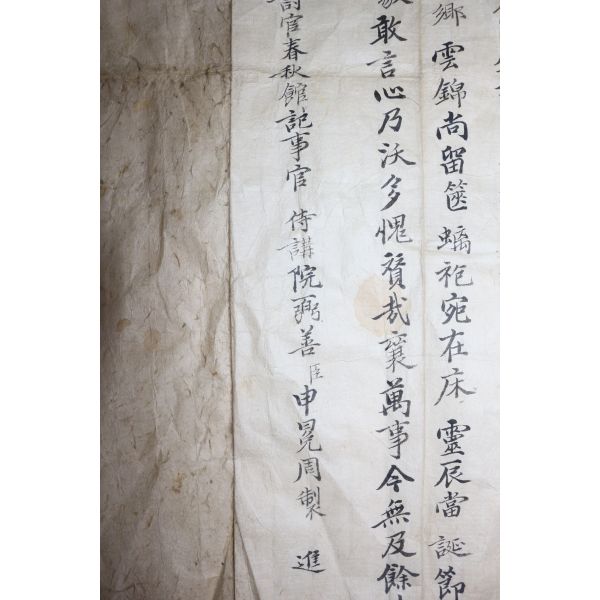 鄉 雲錦尚留篋 螭袍宛在床 靈辰當誕節
敢言心乃沃 多愧贊哉襄 萬事今無及 餘
討官春秋館記事官 侍講院弼善臣申冕周製 進